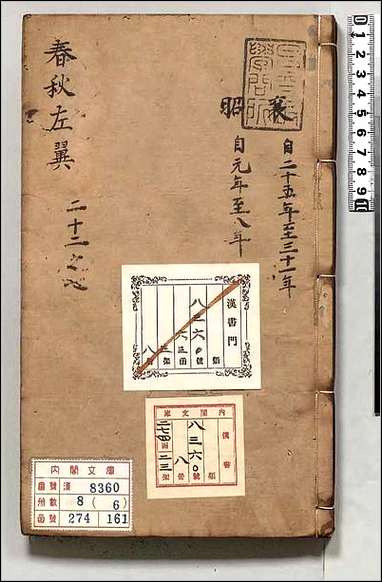 襄 自二十五年至三十一年
昭 自元年至八年
春秋左翼
二十二之
漢書門
八三六〇號
類
函
架
八冊
內閣文庫
漢書
八三六〇號
類
八冊
函
架
內閣文庫
番號 漢 8360
冊數 8 ( 6 )
函號 274 161
0 1 2 3 4 5 6 7 8 9 10